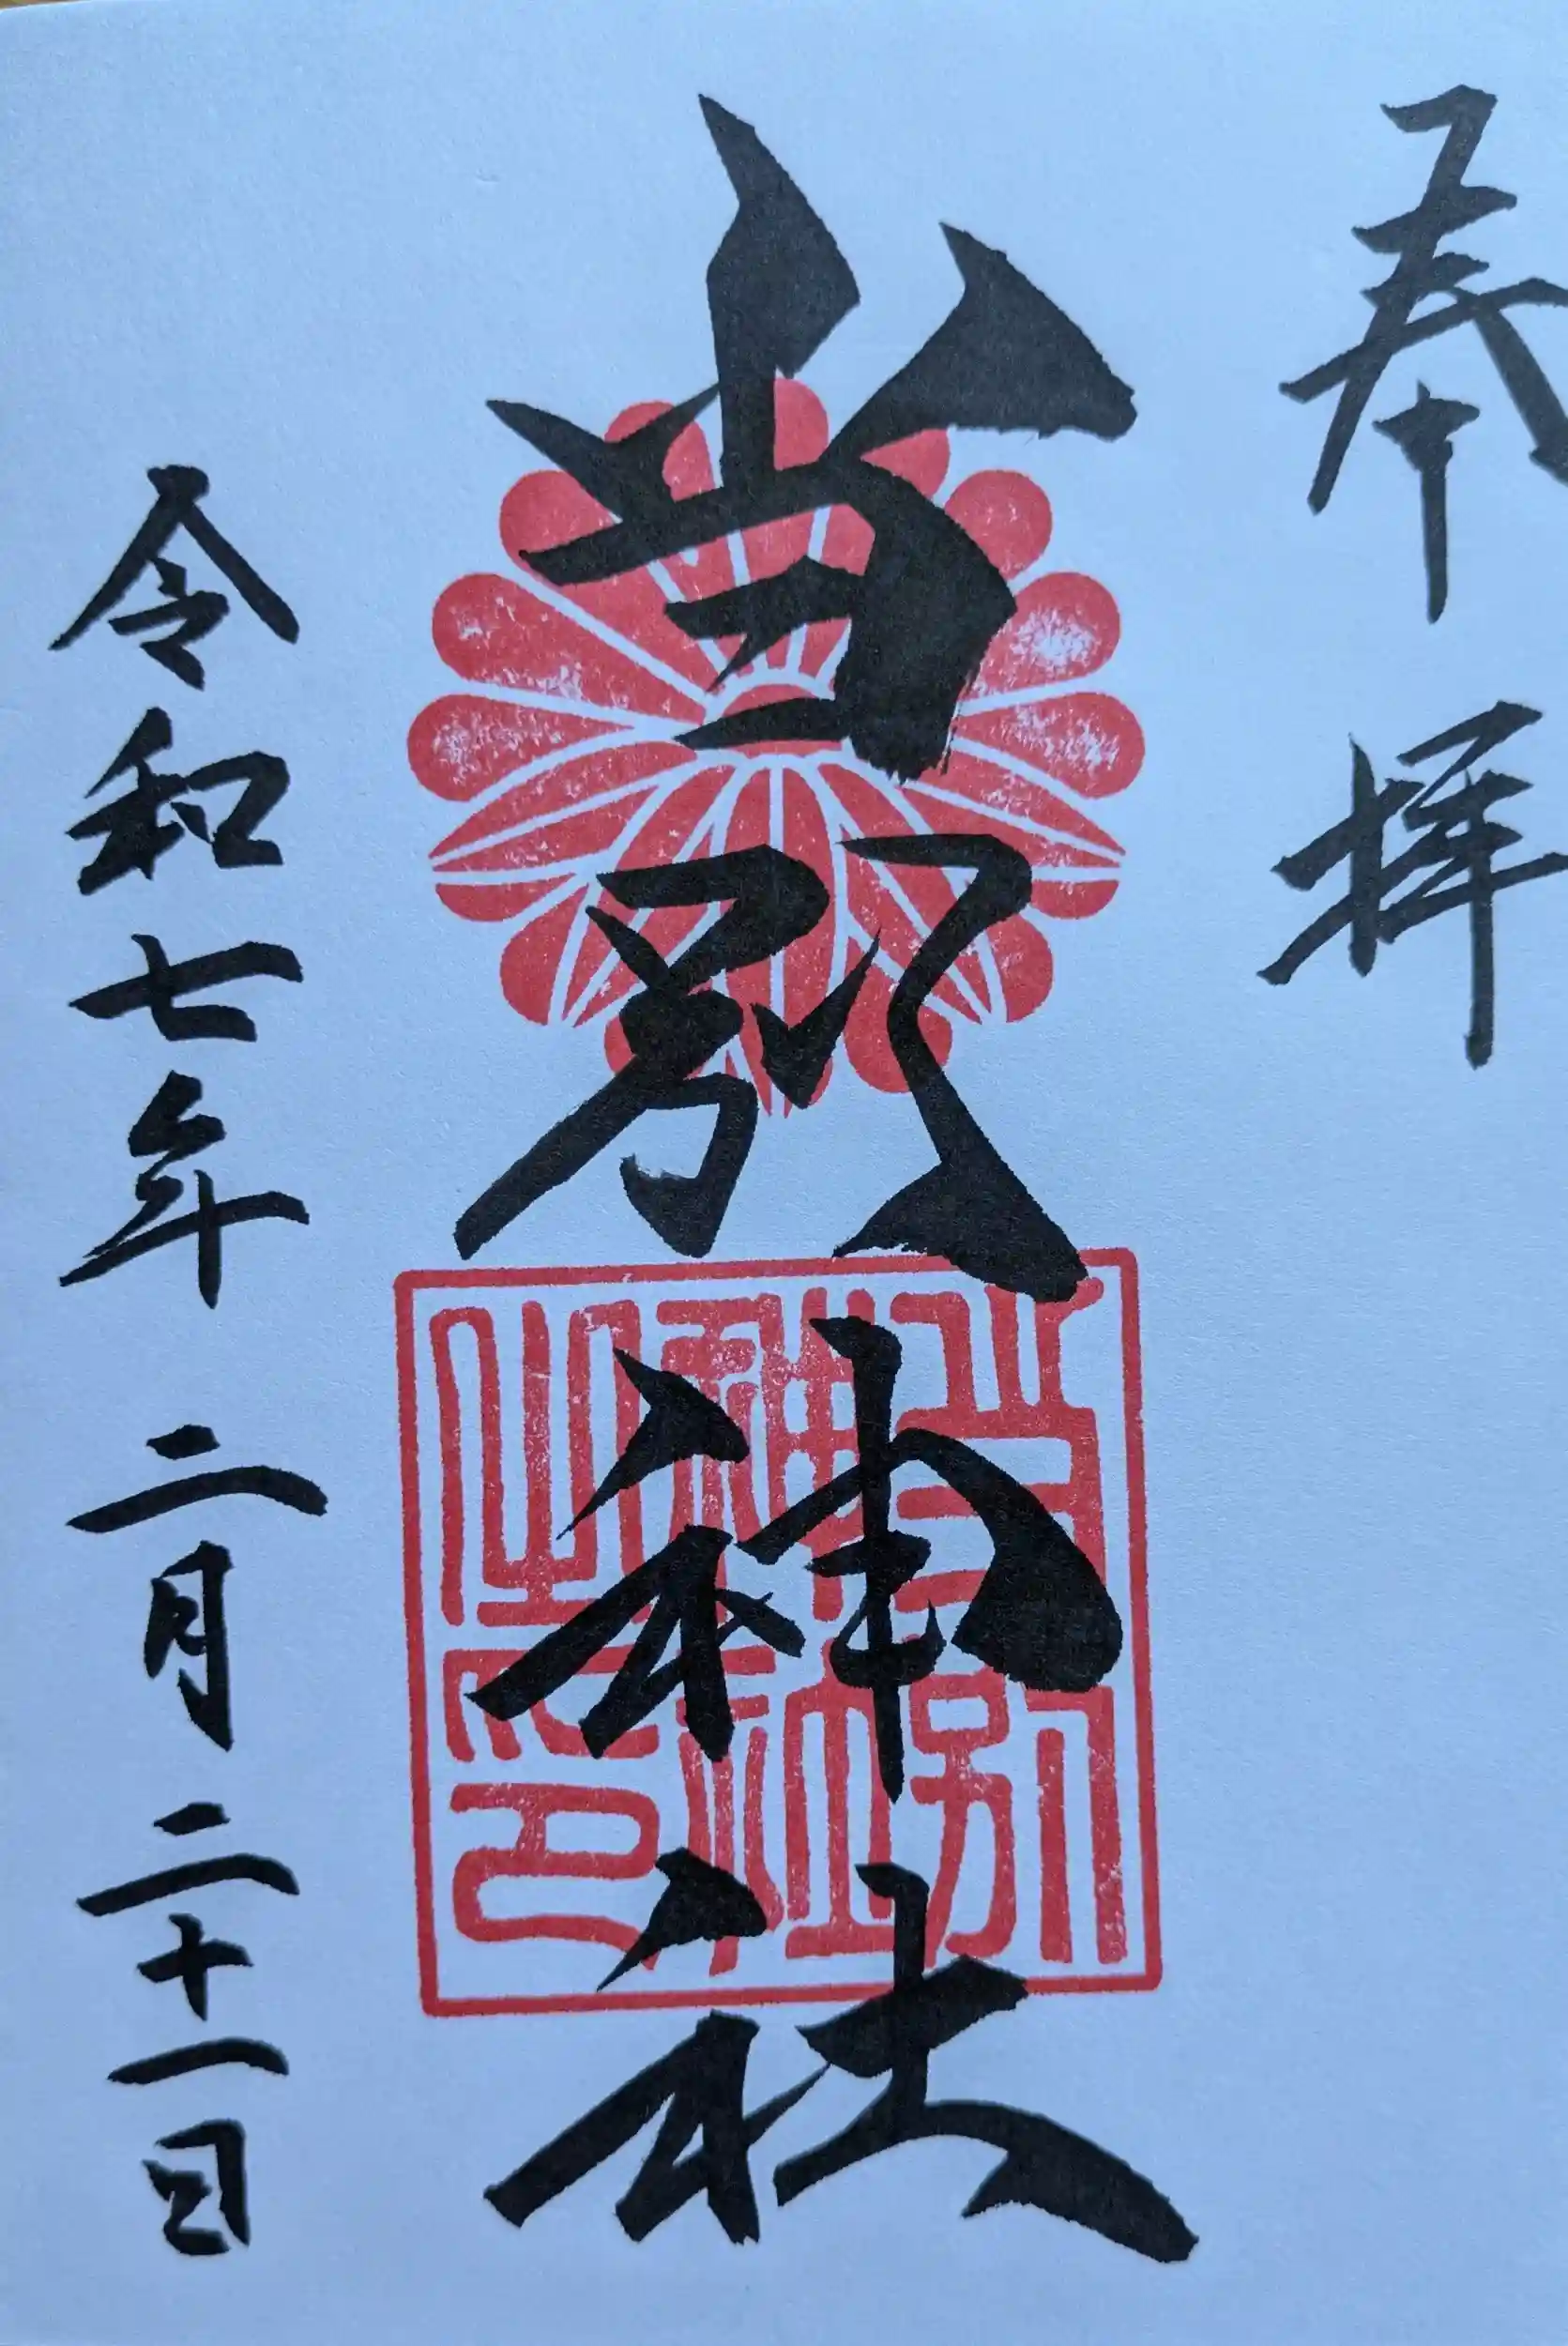 奉拝
当別神社
当別
神社
之印
令和七年 二月 二十一日